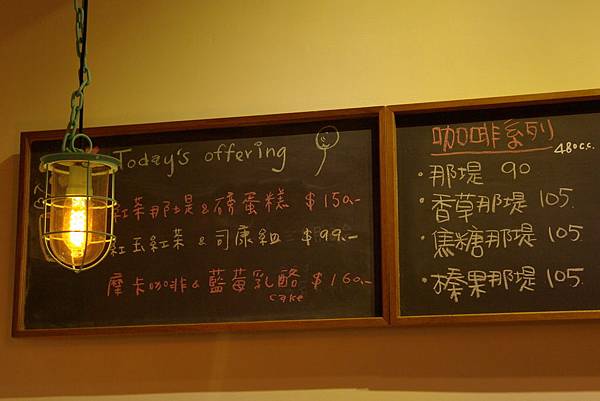 Today's offering
紅茶那堤&磅蛋糕 $150.-
紅玉紅茶&司康組 $99.-
摩卡咖啡&藍莓乳酪 $160.-
cake
咖啡系列
480c.c.
·那堤 90
·香草那堤 105.
·焦糖那堤 105.
·榛果那堤 105.